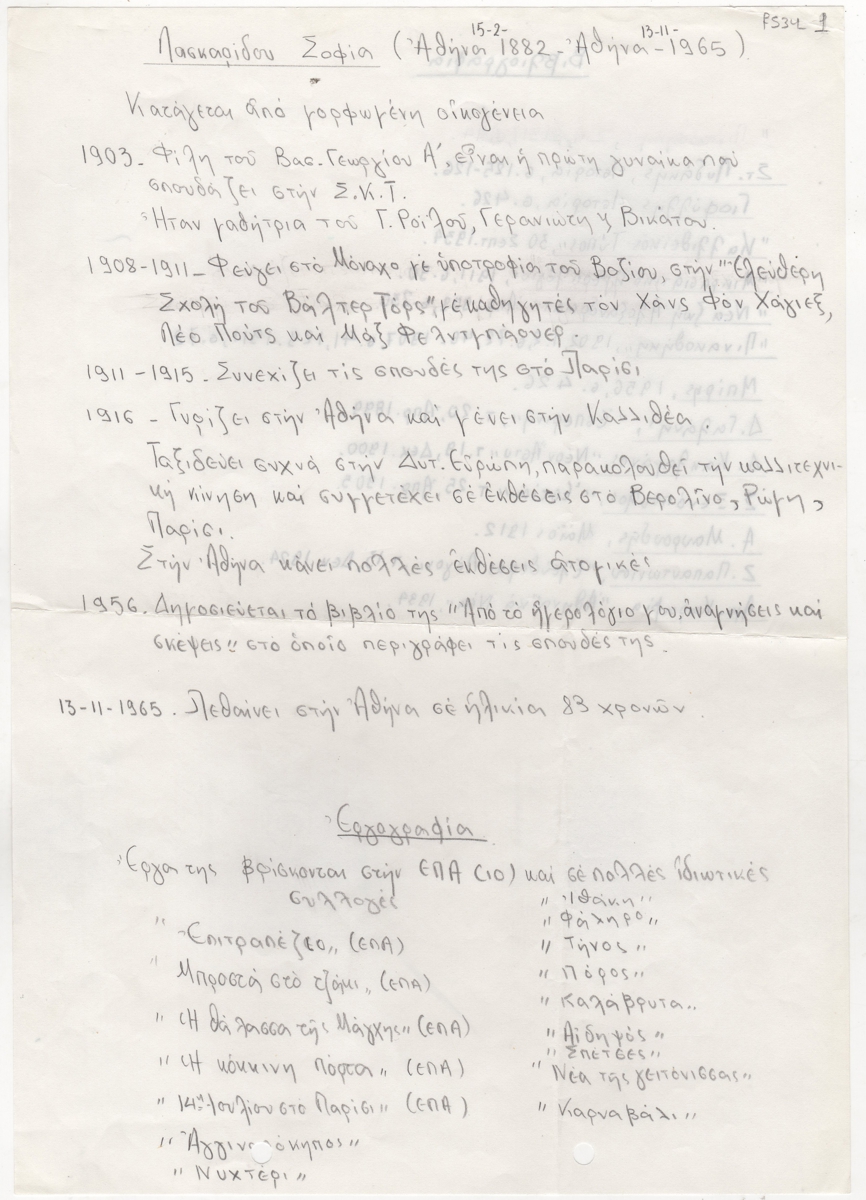 FS34 1
Λασκαρίδου Σοφία (Ἀθήνα 15-2-1882 - Ἀθήνα 13-11-1965)
Κατάγεται ἀπό μορφωμένη οἰκογένεια
1903 - Φίλη τοῦ Βασ. Γεωργίου Α΄, εἶναι ἡ πρώτη γυναίκα πού
σπουδάζει στήν Σ.Κ.Τ.
Ἦταν μαθήτρια τοῦ Γ. Ροϊλοῦ, Γερανιώτη ϗ Βικάτου.
1908-1911 - Φεύγει στό Μόναχο μέ ὑποτροφία τοῦ Βοζίου, στήν "Ἐλεύθερη
Σχολή τοῦ Βάλτερ Τόρς", μέ καθηγητές τόν Χάνς Φόν Χάγιεξ,
Λέο Πούτς καί Μάξ Φελντμπάουερ.
1911 - 1915 - Συνεχίζει τίς σπουδές της στό Παρίσι
1916 - Γυρίζει στήν Ἀθήνα καί μένει στήν Καλλιθέα.
Ταξιδεύει συχνά στήν Δυτ. Εὐρώπη, παρακολουθεῖ τήν καλλιτεχνι-
κή κίνηση καί συμμετέχει σέ ἐκθέσεις στό Βερολῖνο, Ρώμη,
Παρίσι.
Στήν Ἀθήνα κάνει πολλές ἐκθέσεις ἀτομικές
1956. Δημοσιεύεται τό βιβλίο της "Ἀπό τό ἡμερολόγιο μου, ἀναμνήσεις καί
σκέψεις" στό ὁποῖο περιγράφει τίς σπουδές της.
13-11-1965. Πεθαίνει στήν Ἀθήνα σέ ἡλικία 83 χρονῶν.
Ἐργογραφία
Ἔργα της βρίσκονται στήν ΕΠΑ (10) καί σέ πολλές ἰδιωτικές
συλλογές
"Ἐπιτραπέζιο" (ΕΠΑ)
"Μπροστά στό τζάμι" (ΕΠΑ)
"Ἡ θάλασσα τῆς Μάγχης" (ΕΠΑ)
"Ἡ κόκκινη Πόρτα" (ΕΠΑ)
"14η Ἰουλίου στό Παρίσι" (ΕΠΑ)
"Ἀγγιναρόκηπος"
"Νυχτέρι"
"Ἰθάκη"
"Φάληρο"
"Τήνος"
"Πόρος"
"Καλάβρυτα"
"Αἰδηψός"
"Σπέτσες"
"Νέα τῆς γειτόνισσας"
"Καρναβάλι"